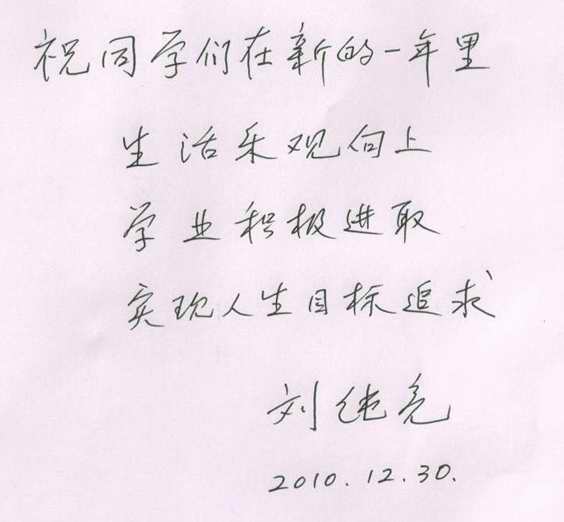 祝同学们在新的一年里
生活乐观向上
学业积极进取
实现人生目标追求
刘继亮
2010.12.30.